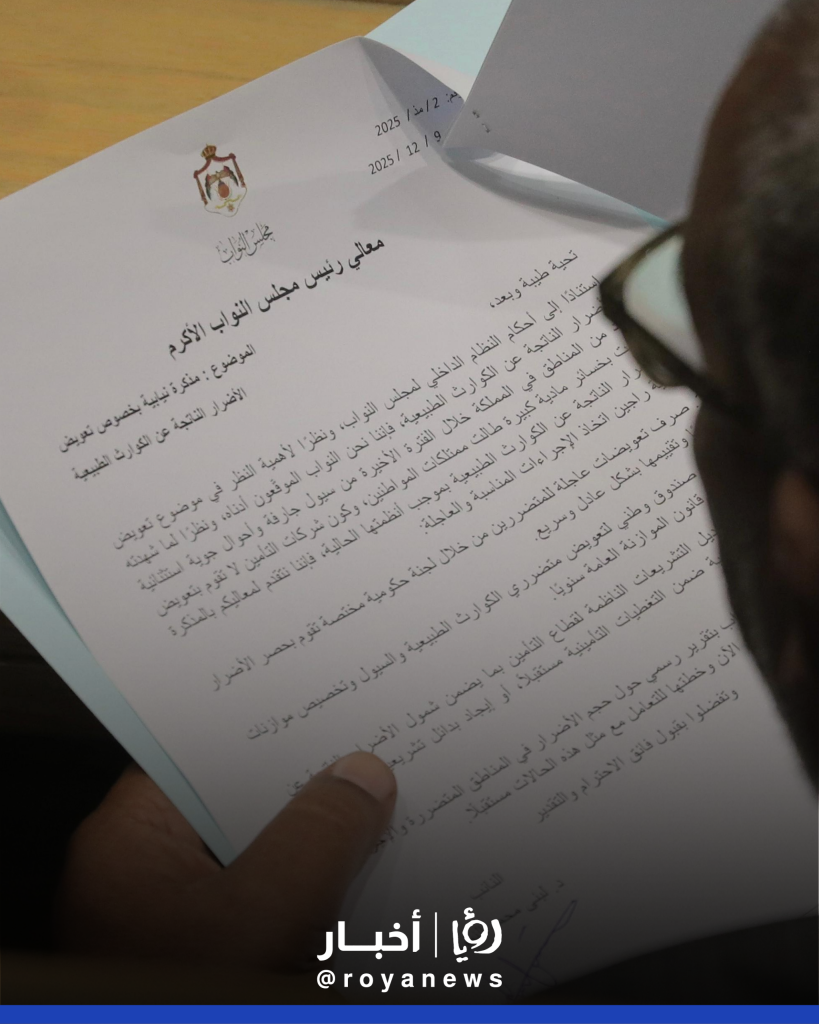 2 / مذ / 2025
9 / 12 / 2025
مجلس النواب
معالي رئيس مجلس النواب الأكرم
الموضوع : مذكرة نيابية بخصوص تعويض
الأضرار الناتجة عن الكوارث الطبيعية
تحية طيبة وبعد،
استنادًا إلى أحكام النظام الداخلي لمجلس النواب، ونظرًا لأهمية النظر في موضوع تعويض
الناتجة عن الكوارث الطبيعية، فإننا نحن النواب الموقعون أدناه، ونظرًا لما شهدته
من المناطق في المملكة خلال الفترة الأخيرة من سيول جارفة وأحوال جوية استثنائية
بخسائر مادية كبيرة طالت ممتلكات المواطنين، وكون شركات التأمين لا تقوم بتعويض
الناتجة عن الكوارث الطبيعية بموجب أنظمتها الحالية، فإننا نتقدم لمعاليكم بالمذكرة
راجين اتخاذ الإجراءات المناسبة والعاجلة:
صرف تعويضات عاجلة للمتضررين من خلال لجنة حكومية مختصة تقوم بحصر الأضرار
وتقييمها بشكل عادل وسريع.
صندوق وطني لتعويض متضرري الكوارث الطبيعية والسيول وتخصيص موازنات
قانون الموازنة العامة سنويًا.
التشريعات الناظمة لقطاع التأمين بما يضمن شمول عن
ضمن التغطيات التأمينية مستقبلاً، أو إيجاد بدائل
بتقرير رسمي حول حجم الأضرار في المناطق المتضررة
الآن وخطتها للتعامل مع مثل هذه الحالات مستقبلاً.
وتفضلوا بقبول فائق الاحترام والتقدير
النائب
د.
رؤيا | أخبار
@royanews